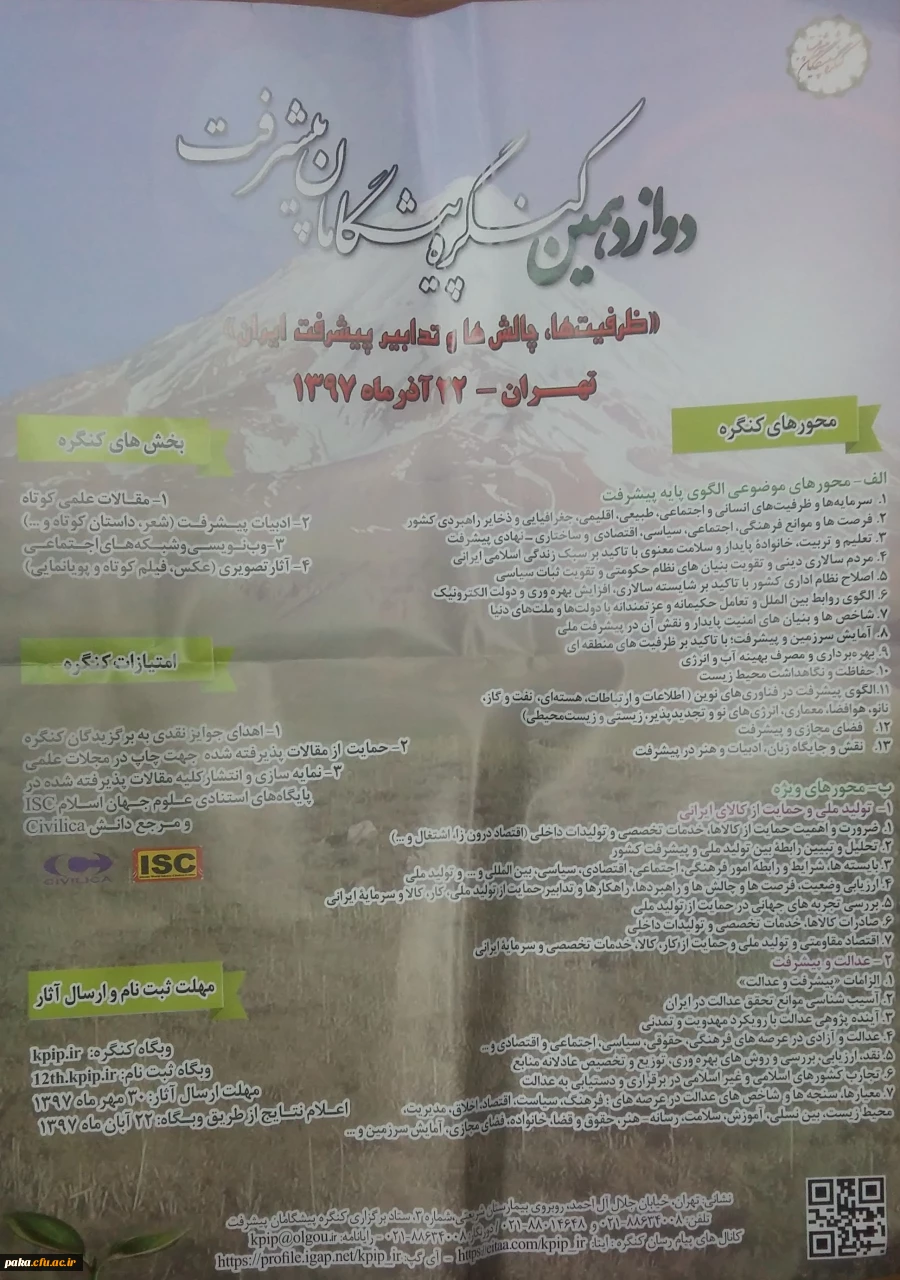 دوازدهمین کنگره پیشگامان پیشرفت
«ظرفیت‌ها، چالش ها و تدابیر پیشرفت ایران»
تهران - ۲۲ آذر ماه ۱۳۹۷
محورهای کنگره
الف- محورهای موضوعی الگوی پایه پیشرفت
۱. سرمایه‌ها و ظرفیت‌های انسانی و اجتماعی، طبیعی، اقلیمی، جغرافیایی و ذخایر راهبردی کشور
۲. فرصت ها و موانع فرهنگی، اجتماعی، سیاسی، اقتصادی و ساختاری - نهادی پیشرفت
۳. تعلیم و تربیت، خانوادهٔ پایدار و سلامت معنوی با تاکید بر سبک زندگی اسلامی ایرانی
۴. مردم سالاری دینی و تقویت بنیان های نظام حکومتی و تقویت ثبات سیاسی
۵. اصلاح نظام اداری کشور با تاکید بر شایسته سالاری، افزایش بهره وری و دولت الکترونیک
۶. الگوی روابط بین الملل و تعامل حکیمانه و عزتمندانه با دولت‌ها و ملت‌های دنیا
۷. شاخص ها و بنیان های امنیت پایدار و نقش آن در پیشرفت ملی
۸. آمایش سرزمین و پیشرفت؛ با تاکید بر ظرفیت های منطقه ای
۹. بهره‌برداری و مصرف بهینه آب و انرژی
۱۰. حفاظت و نگاهداشت محیط زیست
۱۱. الگوی پیشرفت در فناوری‌های نوین ( اطلاعات و ارتباطات، هسته‌ای، نفت و گاز،
نانو، هوافضا، معماری، انرژی‌های نو و تجدیدپذیر، زیستی و زیست‌محیطی)
۱۲. فضای مجازی و پیشرفت
۱۳. نقش و جایگاه زبان، ادبیات و هنر در پیشرفت
ب- محورهای ویژه
۱- تولید ملی و حمایت از کالای ایرانی
۱. ضرورت و اهمیت حمایت از کالاها، خدمات تخصصی و تولیدات داخلی (اقتصاد درون زا، اشتغال و ...)
۲. تحلیل و تبیین رابطهٔ بین تولید ملی و پیشرفت کشور
۳. بایسته ها، شرایط و رابطه امور فرهنگی، اجتماعی، اقتصادی، سیاسی، بین المللی و ... و تولید ملی
۴. ارزیابی وضعیت، فرصت ها و چالش ها و راهبردها، راهکارها و تدابیر حمایت از تولید ملی، کار، کالا و سرمایهٔ ایرانی
۵. بررسی تجربه های جهانی در حمایت از تولید ملی
۶. صادرات کالاها، خدمات تخصصی و تولیدات داخلی
۷. اقتصاد مقاومتی و تولید ملی و حمایت از کار، کالا، خدمات تخصصی و سرمایهٔ ایرانی
۲- عدالت و پیشرفت
۱. الزامات «پیشرفت و عدالت»
۲. آسیب شناسی موانع تحقق عدالت در ایران
۳. آینده پژوهی عدالت با رویکرد مهدویت و تمدنی
۴. عدالت و آزادی در عرصه های فرهنگی، حقوقی، سیاسی، اجتماعی و اقتصادی و...
۵. نقد، ارزیابی، بررسی و روش های بهره وری، توزیع و تخصیص عادلانه منابع
۶. تجارب کشورهای اسلامی و غیر اسلامی در برقراری و دستیابی به عدالت
۷. معیارها، سنجه ها و شاخص های عدالت در عرصه های : فرهنگ، سیاست، اقتصاد، اخلاق، مدیریت،
محیط زیست، بین نسلی، آموزش، سلامت، رسانه - هنر، حقوق و قضا، خانواده، فضای مجازی، آمایش سرزمین و ...
بخش های کنگره
۱- مقالات علمی کوتاه
۲- ادبیات پیشرفت (شعر، داستان کوتاه و ...)
۳- وب‌نویسی و شبکه‌های اجتماعی
۴- آثار تصویری (عکس، فیلم کوتاه و پویانمایی)
امتیازات کنگره
۱- اهدای جوایز نقدی به برگزیدگان کنگره
۲- حمایت از مقالات پذیرفته شده جهت چاپ در مجلات علمی
۳- نمایه سازی و انتشار کلیه مقالات پذیرفته شده در
پایگاه‌های استنادی علوم جهان اسلام ISC
و مرجع دانش Civilica
CIVILICA
ISC
مهلت ثبت نام و ارسال آثار
وبگاه کنگره: kpip.ir
وبگاه ثبت نام: 12th.kpip.ir
مهلت ارسال آثار: ۳۰ مهر ماه ۱۳۹۷
اعلام نتایج از طریق وبگاه: ۲۲ آبان ماه ۱۳۹۷
نشانی: تهران، خیابان جلال آل احمد، روبروی بیمارستان شریعتی، شماره ۳، ستاد برگزاری کنگره پیشگامان پیشرفت
تلفن: ۸۸۶۳۴۰۰۸-۰۲۱ و ۸۸۰۱۴۶۴۸-۰۲۱ ۸۸۶۳۴۰۰۸ رایانامه: kpip@olgou.ir
کانال های پیام رسان کنگره : ایتا: https://eitaa.com/kpip_ir - آی گپ: https://profile.igap.net/kpip_ir
paka.cfu.ac.ir